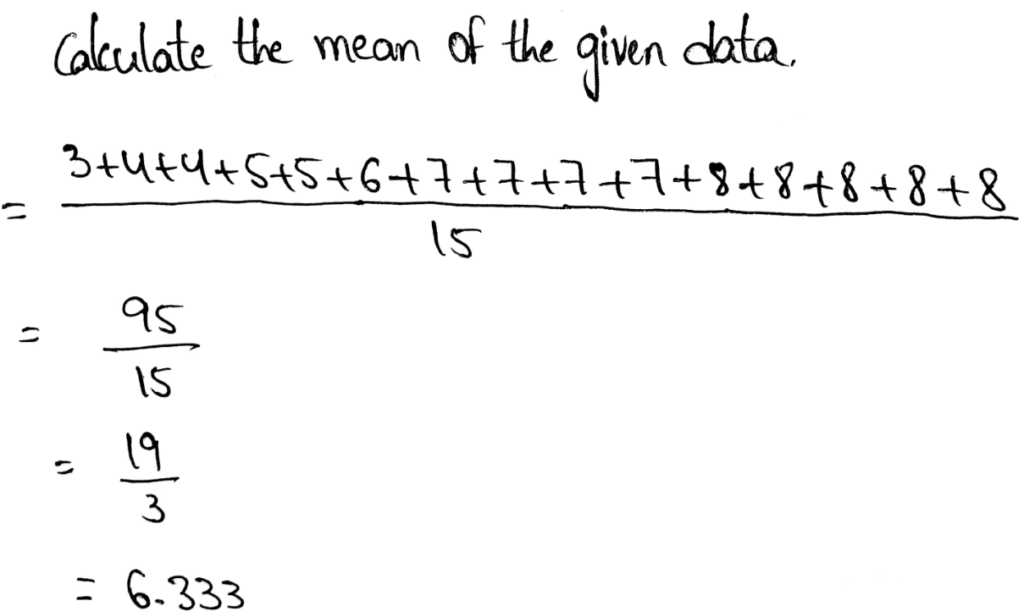 Calculate the mean of the given data.
= 3+4+4+5+5+6+7+7+7+7+8+8+8+8+8
15
= 95
15
= 19
3
= 6.333